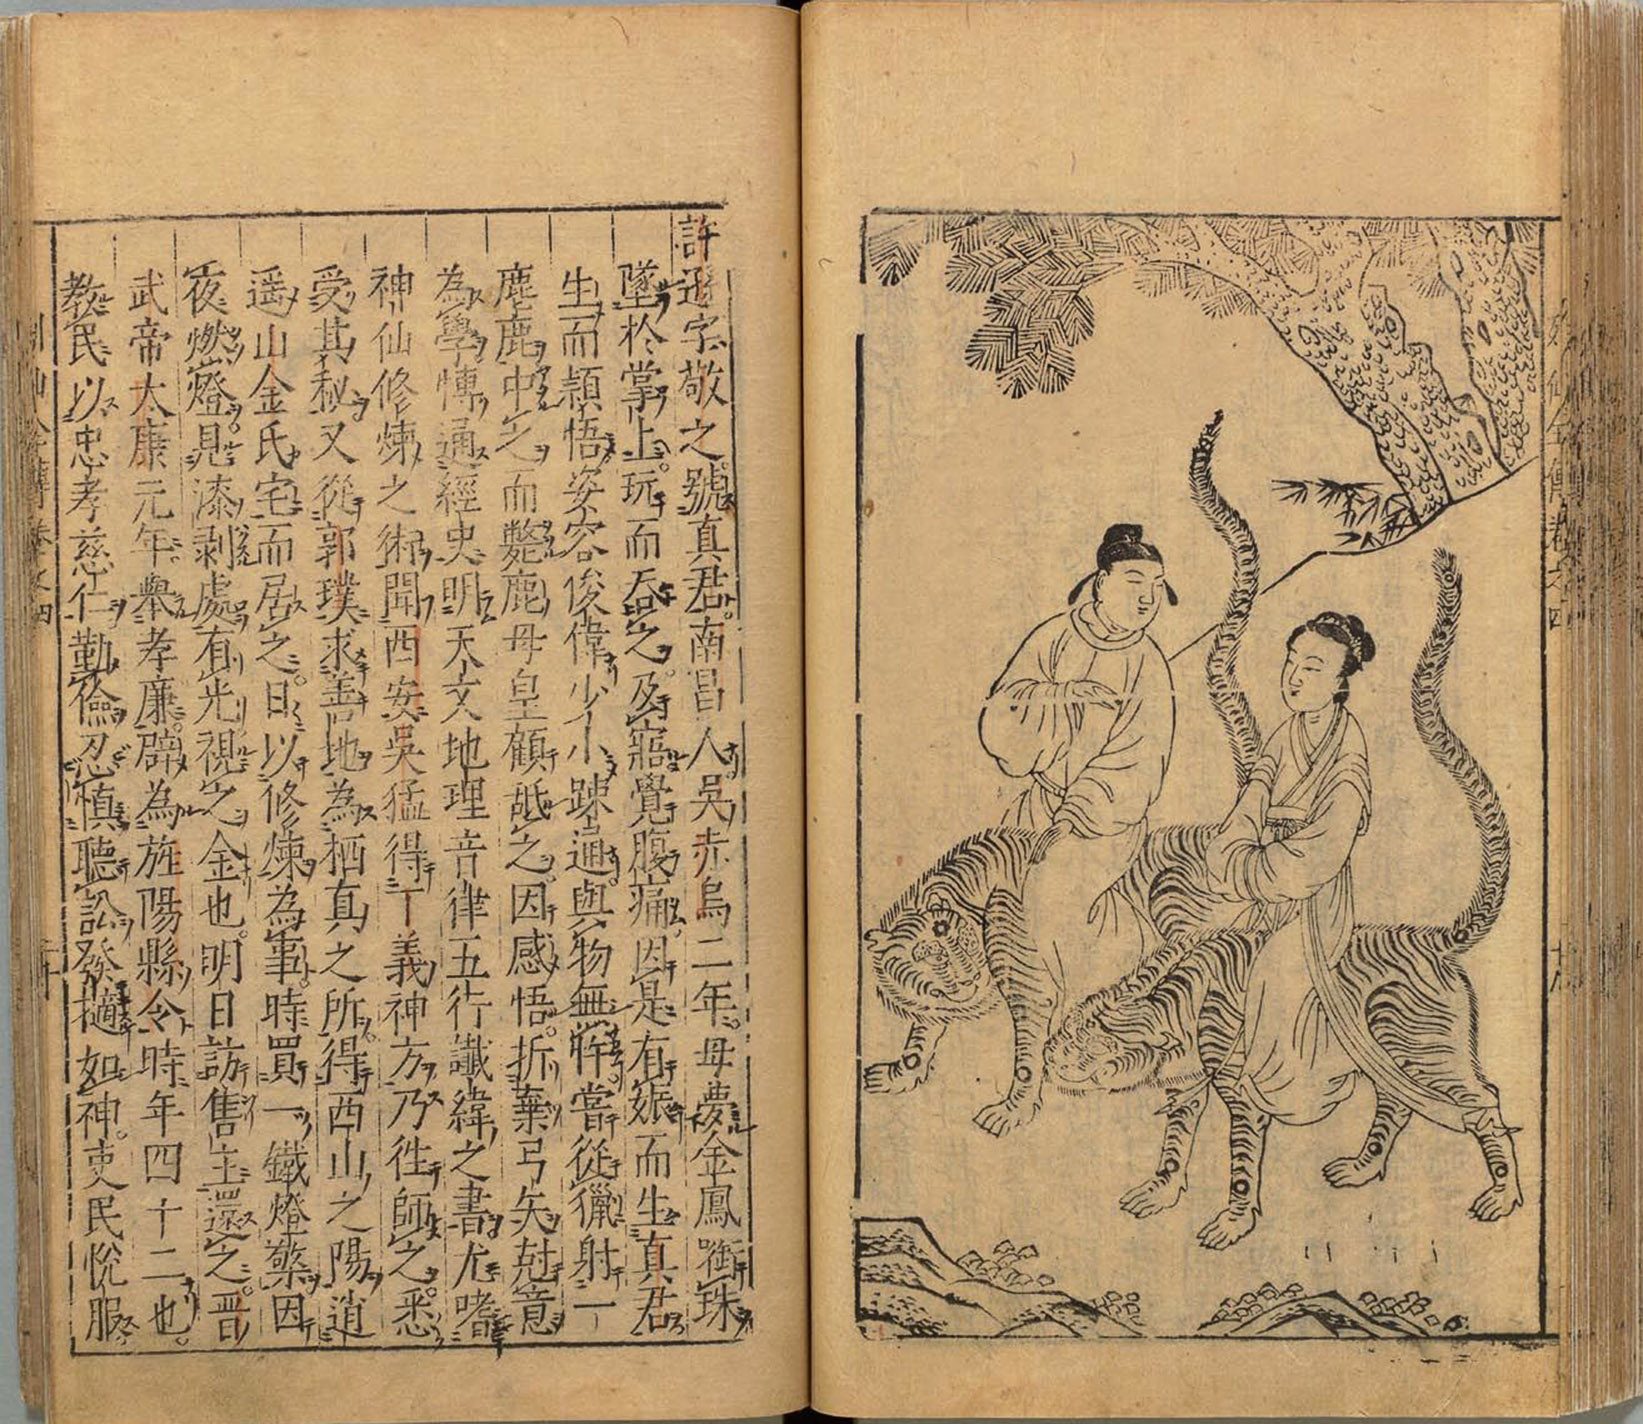 列仙全傳卷之四
許遜字敬之。號真君。南昌人。吳赤烏二年。母夢金鳳銜珠
墜於掌上。玩而吞之。及寤覺腹痛。因是有娠而生真君
生而頴悟。姿容俊偉。少小踈通。與物無忤。嘗從獵射一
鹿中之。而斃鹿母皇顧舐之。因感悟。折棄弓矢尅意
為學。博通經史明天文地理音律五行讖緯之書。尤嗜
神仙修煉之術。聞西安吳猛得丁義神方。乃往師之。悉
受其秘。又從郭璞求善地為栖真之所。得西山之陽逍
遥山金氏宅而居之。日以修煉為事。時買一鐵燈檠。因
夜燃燈。見漆剥處有光視之金也。明日訪售主還之。晉
武帝太康元年。舉孝廉。辟為旌陽縣令。時年四十二也。
教民以忠孝慈仁。勤儉忍慎。聽訟發擿如神。吏民悅服。
列仙全傳卷之四